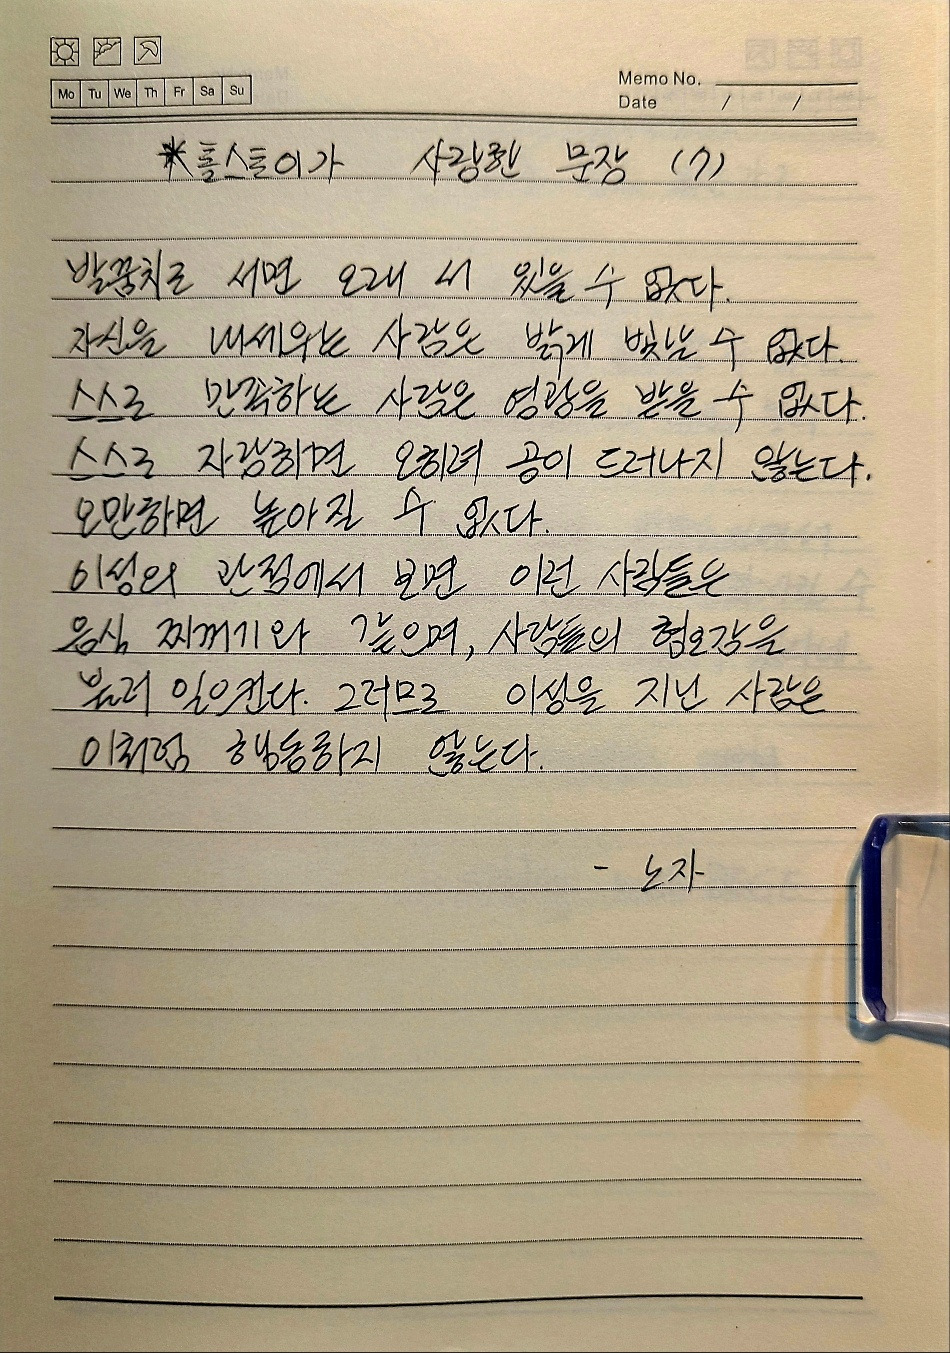 Mo Tu We Th Fr Sa Su
Memo No.
Date / /
*톨스토이가 사랑한 문장 (7)
발꿈치로 서면 오래 서 있을 수 없다.
자신을 내세우는 사람은 밝게 빛날 수 없다.
스스로 만족하는 사람은 영광을 받을 수 없다.
스스로 자랑하면 오히려 공이 드러나지 않는다.
오만하면 높아질 수 없다.
이성의 관점에서 보면 이런 사람들은
음식 찌꺼기와 같으며, 사람들의 혐오감을
불러 일으킨다. 그러므로 이성을 지닌 사람은
이처럼 행동하지 않는다.
- 노자